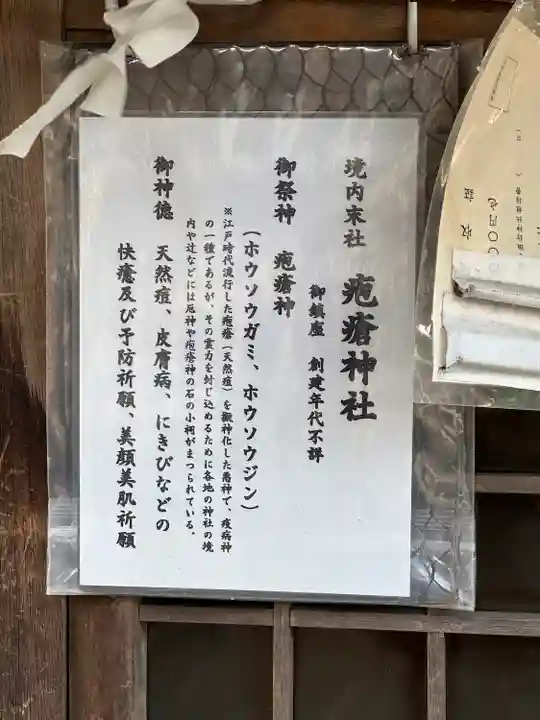 境内末社　疱瘡神社
御鎮座　創建年代不詳
御祭神　疱瘡神
（ホウソウガミ、ホウソウジン）
※江戸時代流行した疱瘡（天然痘）を擬神化した悪神で、疫病神
の一種であるが、その霊力を封じ込めるために各地の神社の境
内や辻などには厄神や疱瘡神の石の小祠がまつられている。
御神徳　天然痘、皮膚病、にきびなどの
快癒及び予防祈願、美顔美肌祈願
収証